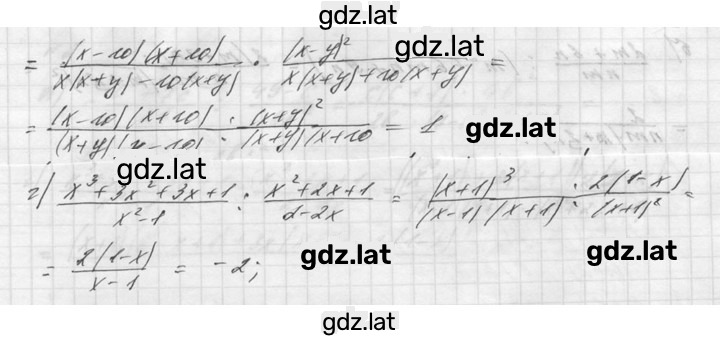 gdz.lat
= (x-10)(x+10) / x(x+y)-10(x+y) · (x-y)² / x(x+y)+10(x+y) = gdz.lat
= (x-10)(x+10) / (x+y)(x-10) : (x+y)² / (x+y)(x+10 = 1 gdz.lat
gdz.lat
г) x³+3x²+3x+1 / x²-1 : x²+2x+1 / 2-2x = (x+1)³ / (x-1)(x+1) : 2(1-x) / (x+1)² =
= 2(1-x) / x-1 = -2; gdz.lat gdz.lat
gdz.lat